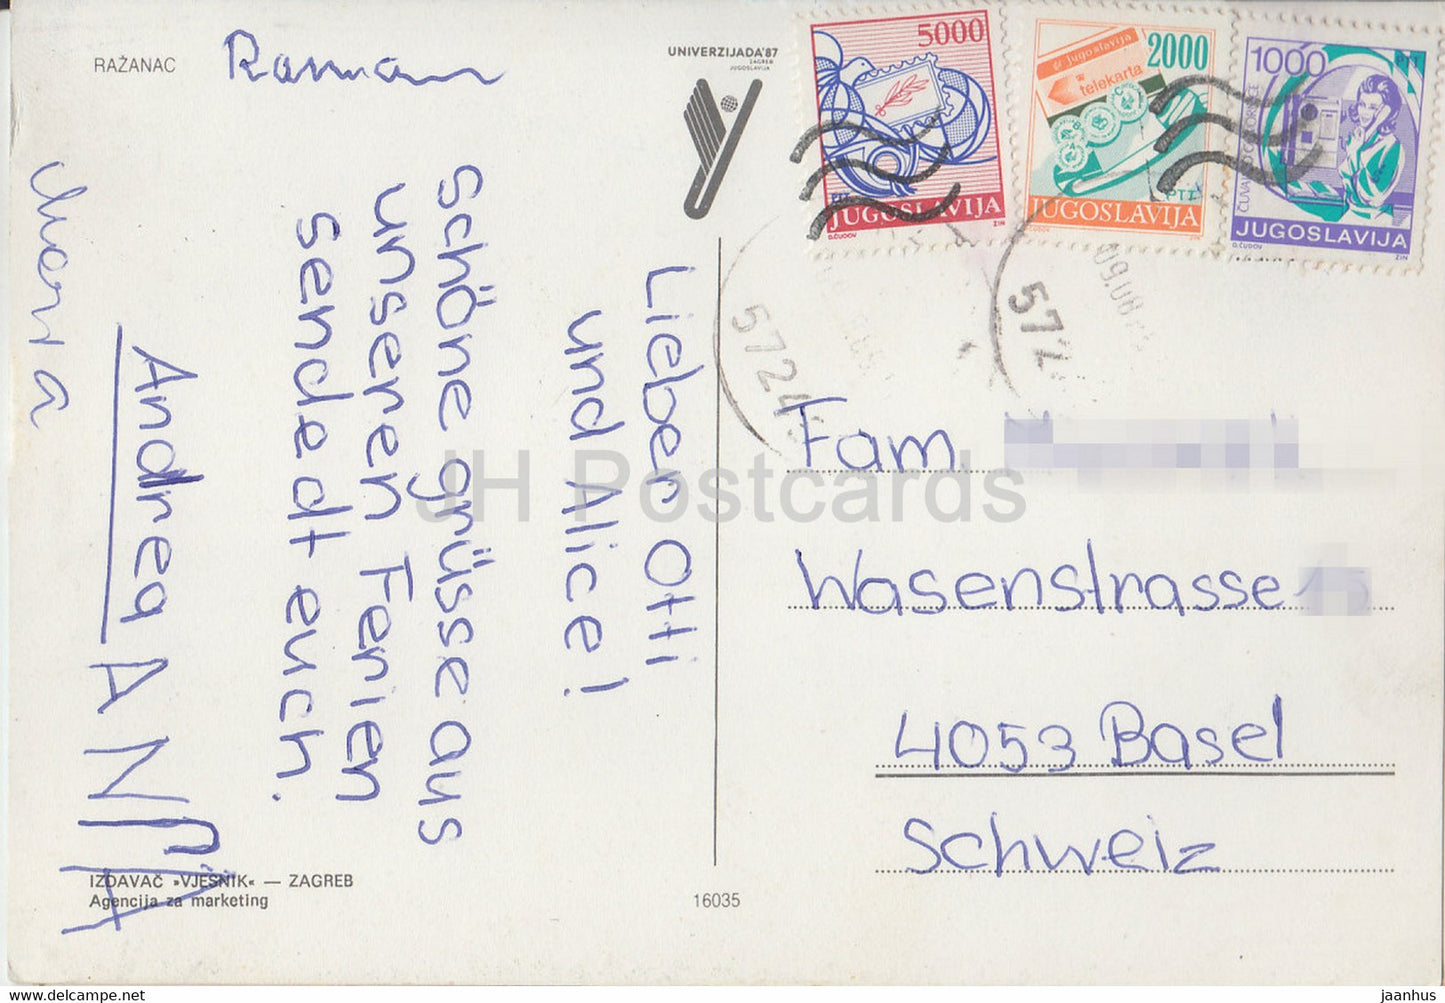 RAŽANAC
UNIVERZIJADA'87
ZAGREB
JUGOSLAVIJA
5000
PTT
JUGOSLAVIJA
D.ČUDOV
ZIN
Jugoslavija
telekarta
2000
PTT
JUGOSLAVIJA
D.ČUDOV
ZIN
1000
PTT
JUGOSLAVIJA
D.ČUDOV
ZIN
Lieber Otti
und Alice!
Schöne grüsse aus
unseren Ferien
sendedt euch.
Andrea
ANNA
Fam.
Wasenstrasse 15
4053 Basel
Schweiz
JH Postcards
IZDAVAČ »VJESNIK« — ZAGREB
Agencija za marketing
16035
www.delcampe.net
jaanhus